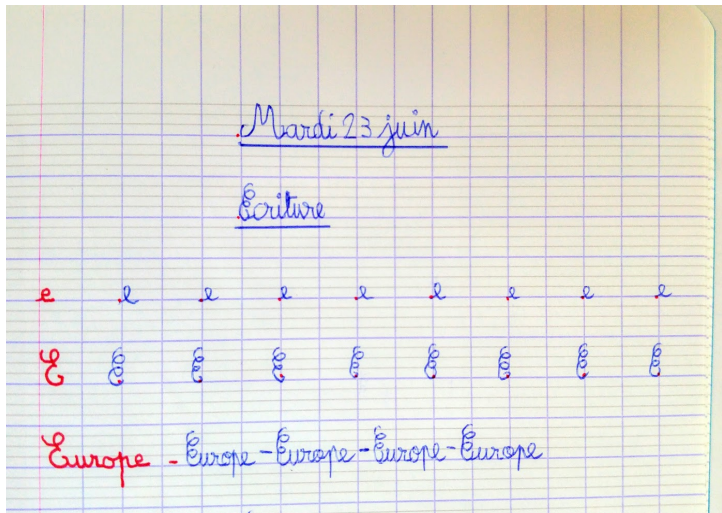 Mardi 23 juin
Ecriture
e e e e e e e e e
E E E E E E E E E
Europe - Europe - Europe - Europe - Europe